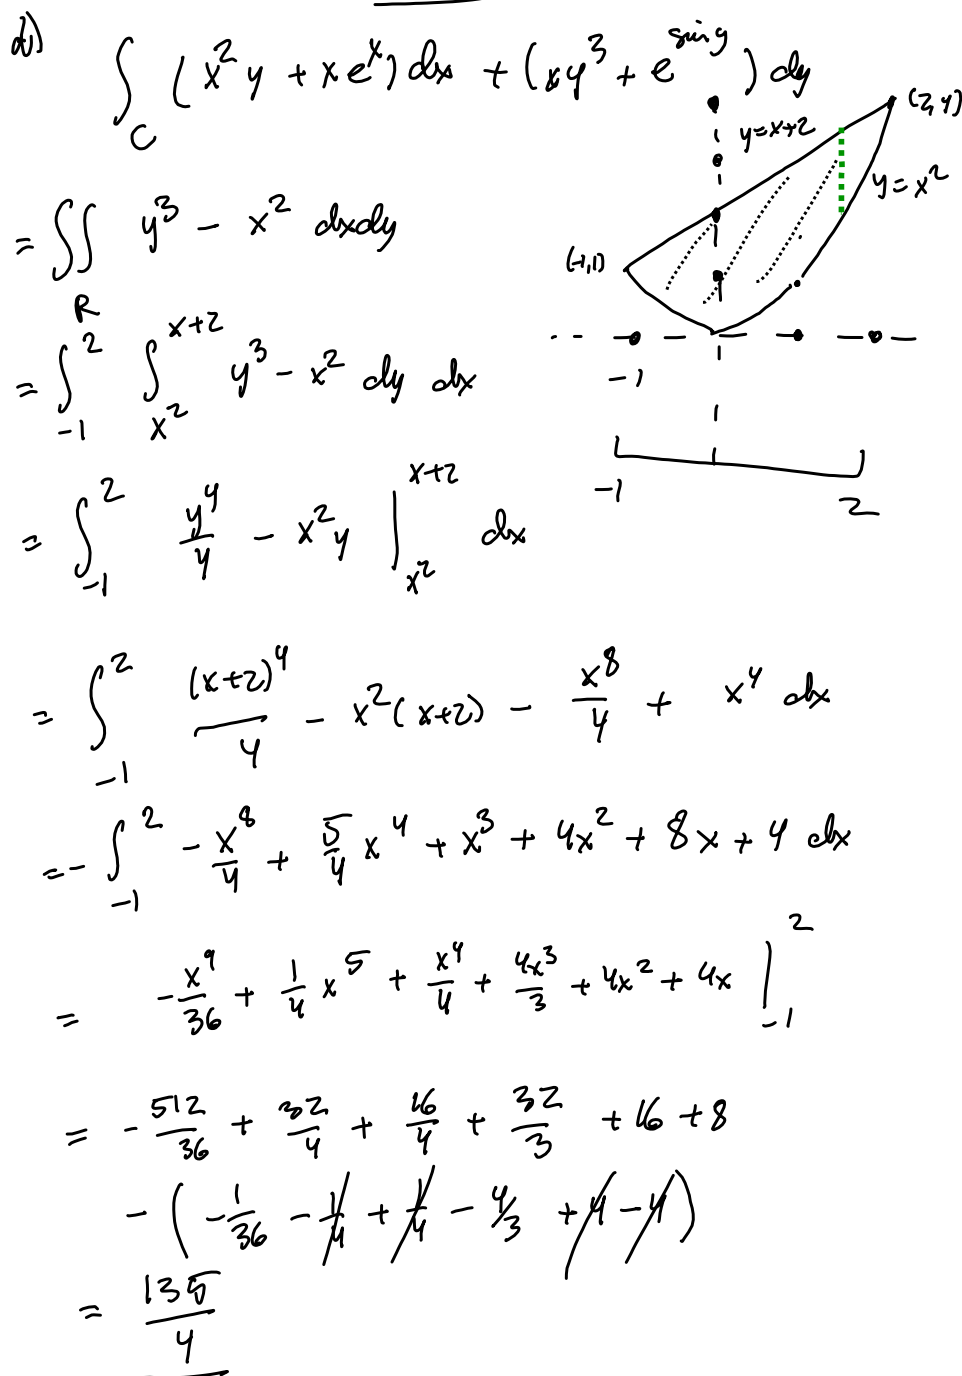 d) ∫_C (x²y + xeˣ) dx + (xy³ + e^{sin y}) dy
(2,4)
y=x+2
y=x²
(-1,1)
= ∬_R y³ - x² dxdy
= ∫_{-1}^{2} ∫_{x²}^{x+2} y³ - x² dy dx
-1
-1 2
= ∫_{-1}^{2} y⁴/4 - x²y |_{x²}^{x+2} dx
= ∫_{-1}^{2} (x+2)⁴/4 - x²(x+2) - x⁸/4 + x⁴ dx
= - ∫_{-1}^{2} -x⁸/4 + 5/4 x⁴ + x³ + 4x² + 8x + 4 dx
= -x⁹/36 + 1/4 x⁵ + x⁴/4 + 4x³/3 + 4x² + 4x |_{-1}^{2}
= -512/36 + 32/4 + 16/4 + 32/3 + 16 + 8
- (-1/36 - 1/4 + 1/4 - 4/3 + 4 - 4)
= 135/4